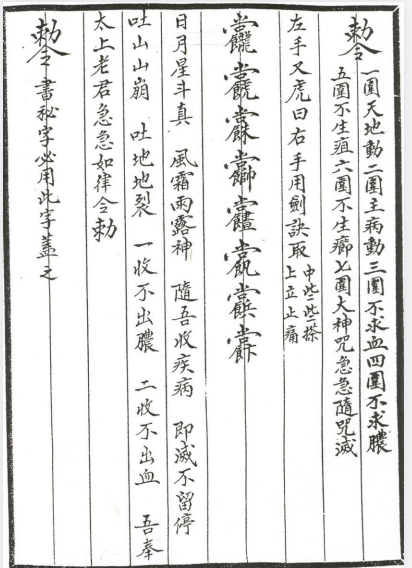 勅令
一圍天地動二圍主病動三圍不求血四圍不求膿
五圍不生疽六圍不生癤七圍大神咒急急隨咒滅
左手又虎曰右手用劍訣取
中些些搽
上立止痛
日月星斗真 風霜雨露神 隨吾收疾病 即滅不留停
吐山山崩 吐地地裂 一收不出膿 二收不出血 吾奉
太上老君急急如律令勅
勅令 書秘字必用此字蓋之